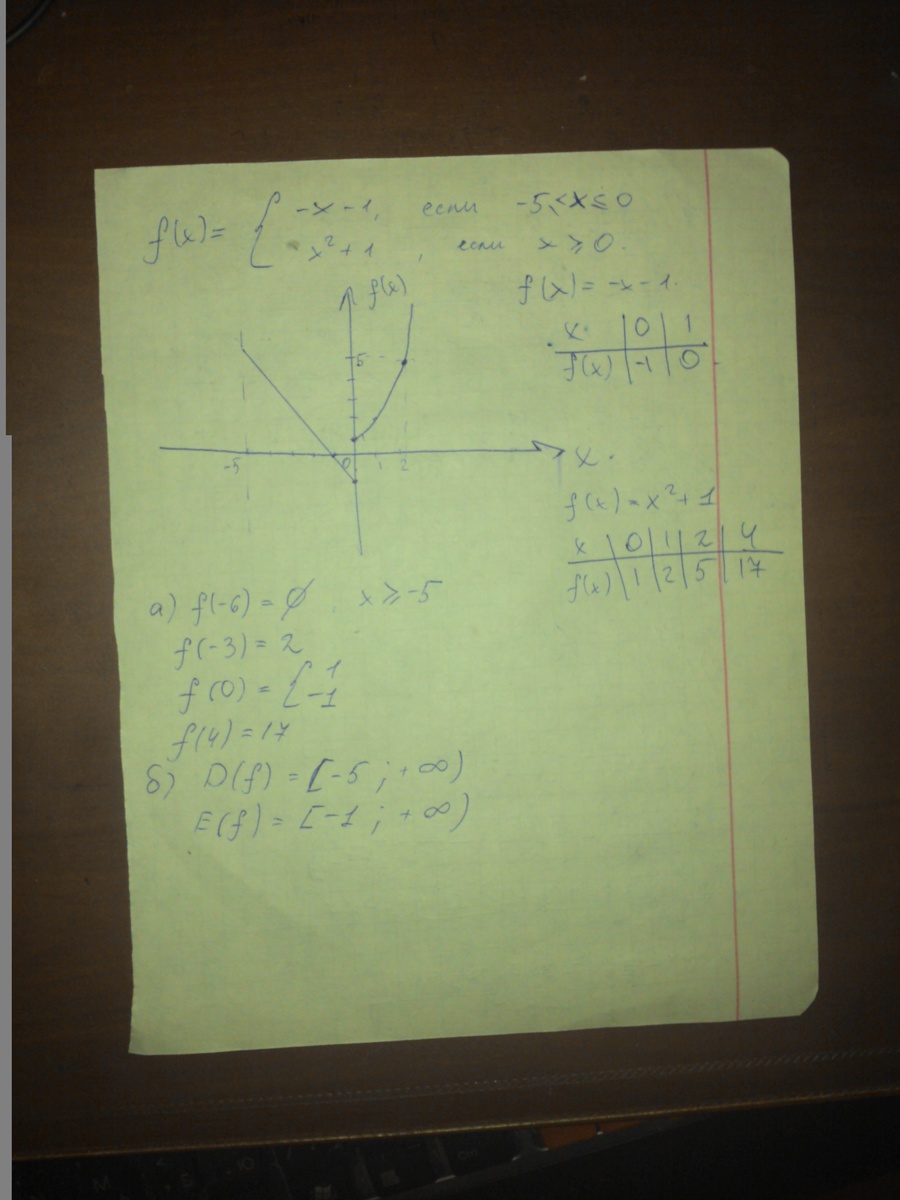 f(x) = { -x - 1, если -5 ≤ x ≤ 0
x² + 1, если x ≥ 0.
f(x) = -x - 1.
x. | 0 | 1
f(x) | -1 | 0
f(x)
5
-5 0 1 2 x.
f(x) = x² + 1
x | 0 | 1 | 2 | 4
f(x) | 1 | 2 | 5 | 17
а) f(-6) = ∅. x ≥ -5
f(-3) = 2
f(0) = { 1
-1
f(4) = 17
б) D(f) = [-5 ; +∞)
E(f) = [-1 ; +∞)